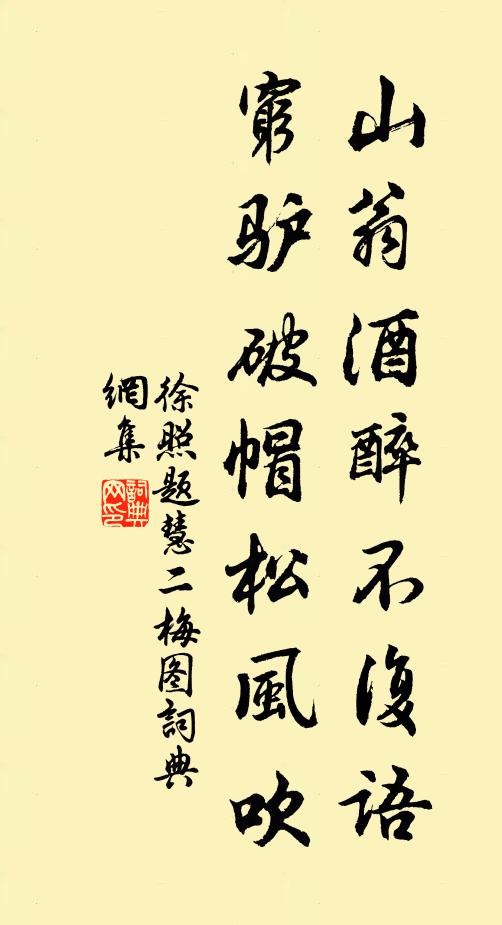 山翁酒醉不復語
窮驴破帽松風吹
徐照题慧二梅图詞典
網集
詞典
网印